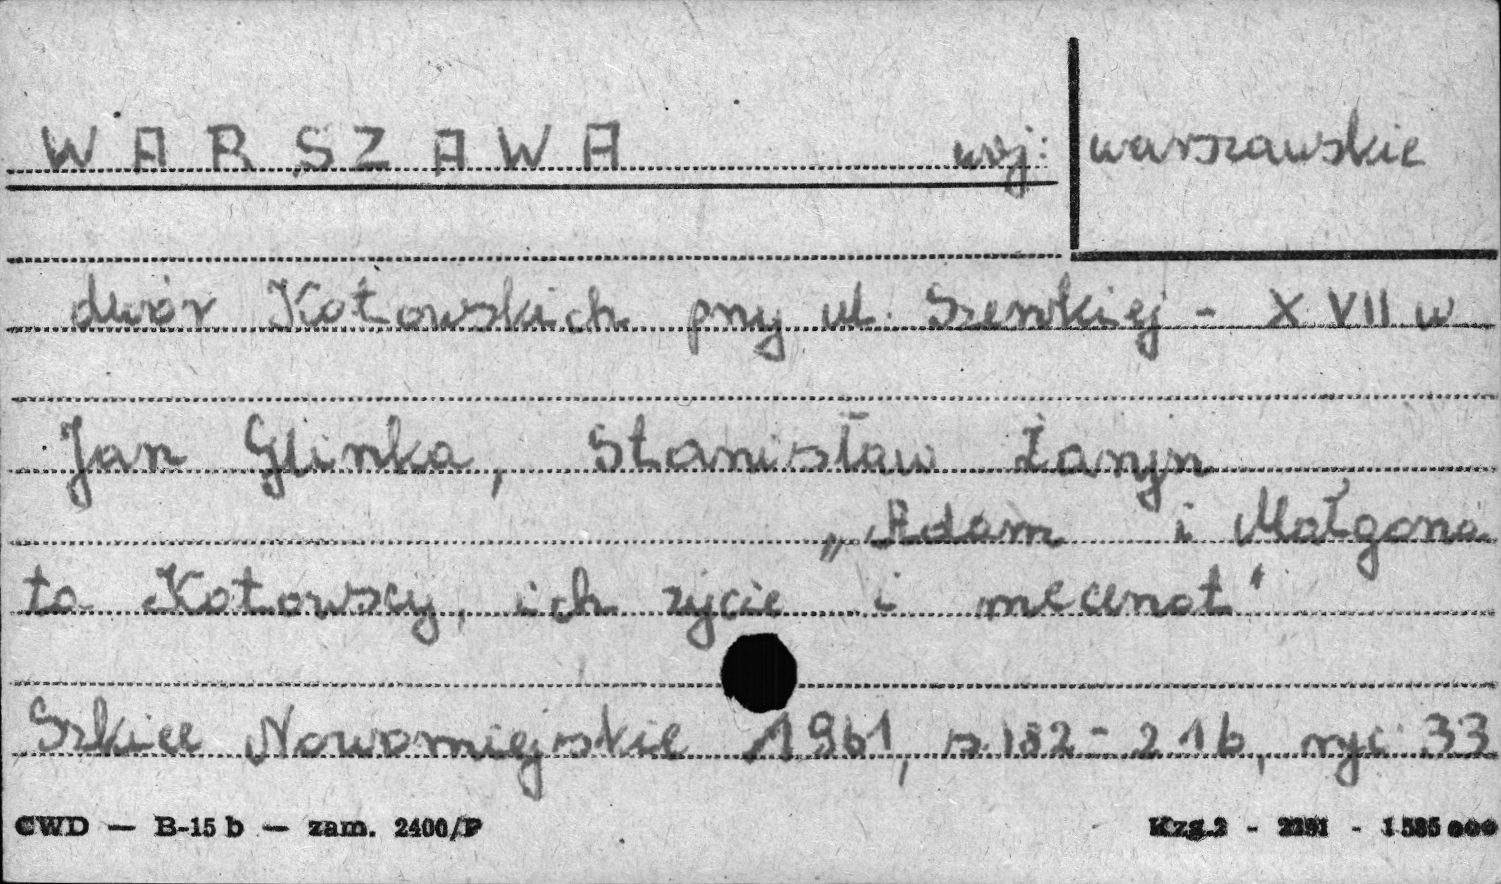 WARSZAWA woj: warszawskie
dwór Kotowskich przy ul. Szerokiej - XVII w
Jan Glinka, Stanisław Żaryn
„Adam i Małgorza
ta Kotowscy, ich życie i mecenat"
Szkice Nowomiejskie 1961, s. 182-216, ryc. 33
CWD — B-15 b — zam. 2400/P
Kzg.2 - 2291 - 1 585 000